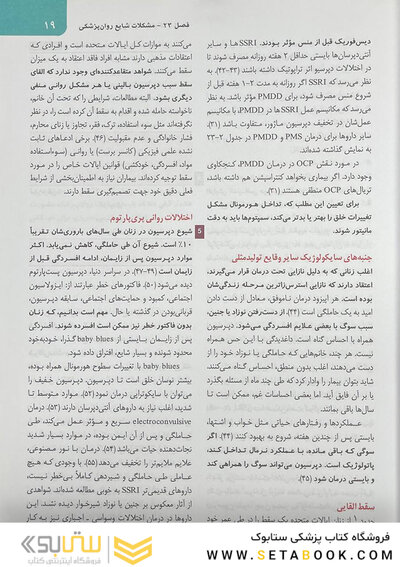 ۱۹
فصل ۲۳ – مشکلات شایع روان‌پزشکی
دیس‌فوریک قبل از منس مؤثر بودند. SSRI ها و سایر
آنتی‌دپرسان‌ها بایستی حداقل ۲ هفته روزانه مصرف شوند تا
در اختلالات دپرسیو اثر تراپوتیک داشته باشند (۴۳-۴۲). به
نظر می‌رسد که SSRI اگر روزانه به مدت ۲-۱ هفته قبل از
شروع منس مصرف شود، برای PMDD مؤثر باشد. به نظر
می‌رسد که مکانیسم عمل SSRI ها در PMDD، با مکانیسم
عمل‌شان در تخفیف دپرسیون ماژور، متفاوت باشد (۳۱).
سایر داروها برای درمان PMS و PMDD در جدول ۲-۲۳
به نمایش گذاشته شده‌اند.
در مورد نقش OCP در درمان PMDD، کنجکاوی
وجود دارد. اگر بیماری بخواهد کنتراسپشن هم داشته باشد،
تریال‌های OCP منطقی هستند (۳۱).
برای تعیین این مطلب که، تداخل هورمونال مشکل
تغییرات خلق را بهتر یا بدتر می‌کند، سمپتوم‌ها باید به دقت
مانیتور شوند.
جنبه‌های سایکولوژیک سایر وقایع تولیدمثلی
اغلب زنانی که به دلیل نازایی تحت درمان قرار می‌گیرند،
اعتقاد دارند که نازایی استرس‌زاترین مرحله زندگی‌شان
بوده است. هر اپیزود درمان ناموفق، معادل از دست دادن
امید به یک حاملگی است (۴۴). از دست‌رفتن نوزاد یا جنین،
سبب سوگ با بعضی علایم افسردگی می‌شود. دپرسیون
همراه با احساس گناه است. داغدیدگی با این حس همراه
نیست. هر چند، خانم‌هایی که حاملگی یا نوزاد خود را از
دست می‌دهند، اغلب بدون منطق، احساس گناه می‌کنند.
شاید بتوان بیمار را وادار کرد که طی چند ماه از مسئله بگذرد
یا بر آن فایق آید. اما بعضی احساسات غم، ممکن است تا
سال‌ها باقی بمانند.
عملکردها و رفتارهای حیاتی مثل خواب و اشتها،
بایستی پس از چندین هفته، شروع به بهبود کنند (۴۴). اگر
سوگی که باقی مانده، با عملکرد نرمال تداخل کند،
پاتولوژیک است. دپرسیون می‌تواند سوگ را همراهی کند
و بایستی درمان شود (۴۵).
سقط القایی
می‌کنند به موازات کل ایالات متحده است و افرادی که
اعتقادات مذهبی دارند مشابه افراد فاقد اعتقاد به یک میزان
سقط می‌کنند. شواهد متقاعدکننده‌ای وجود ندارد که القای
سقط سبب دپرسیون بالینی یا هر مشکل روانی منفی
دیگری بشود. البته مطالعات، شرایطی را که تحت آن خانم،
ناخواسته حامله شده و اقدام به سقط آن کرده است را، در نظر
نگرفته‌اند، مثل سوء استفاده، ترک، فقر، تجاوز یا زنای محارم،
فشار خانوادگی و عدم مقبولیت (۴۶). برخی ادعاهای ثابت
نشده علمی فیزیکی (کانسر پستان) یا روانی (سوءاستفاده
مواد، افسردگی، خودکشی) قوانین ایالات خاص را در مورد
سقط توجیه کرده‌اند. بیماران نیاز به اطمینان‌بخشی از شرایط
فعلی دقیق خود جهت تصمیم‌گیری سقط دارند.
اختلالات روانی پری‌پارتوم
5
شیوع دپرسیون در زنان طی سال‌های باروری‌شان تقریباً
۱۰٪ است. شیوع آن طی حاملگی، کاهش نمی‌یابد. اکثر
موارد دپرسیون پس از زایمان، ادامه افسردگی قبل از
زایمان است (۴۹-۴۷). در سراسر دنیا، دپرسیون پست‌پارتوم
دیده می‌شود (۵۰). فاکتورهای خطر عبارتند از: ایزولاسیون
اجتماعی، کمبود و حمایت‌های اجتماعی، سابقه دپرسیون،
قربانی‌بودن در گذشته یا حال. مهم است بدانیم، که زنان
بدون فاکتور خطر نیز ممکن است افسرده شوند. افسردگی
پس از زایمان بایستی از baby blues گذرا، خودبه‌خود
محدود شونده و بسیار شایع، افتراق داده شود.
baby blues با تغییرات سطوح هورمونال همراه بوده،
بیشتر نوسان خلق است تا دپرسیون. دپرسیون خفیف را
می‌توان با سایکوتراپی درمان نمود (۵۲). موارد متوسط تا
شدید، اغلب نیاز به داروهای آنتی‌دپرسان دارند (۵۳). درمان
electroconvulsive سریع و مؤثر عمل می‌کند، طی
حاملگی و پس از آن ایمن بوده، در موارد بسیار شدید
نجات‌دهنده حیات می‌باشد (۵۴). درمان با نور مصنوعی،
علایم ملایم‌تر را تخفیف می‌دهد (۵۵). با وجودی که هیچ
دارویی طی حاملگی و شیردهی کاملاً بی‌خطر نیست،
داروهای قدیمی‌تر SSRI به خوبی مطالعه شده‌اند. شواهدی
از آثار معکوس بر جنین یا نوزاد شیرخوار دیده نشد. این
داروها در درمان اختلالات وسواسی - اجباری نیز به کار
فروشگاه کتاب پزشکی ستابوک
WWW.SETABOOK.COM
ستابوک
فروشگاه اینترنتی کتاب